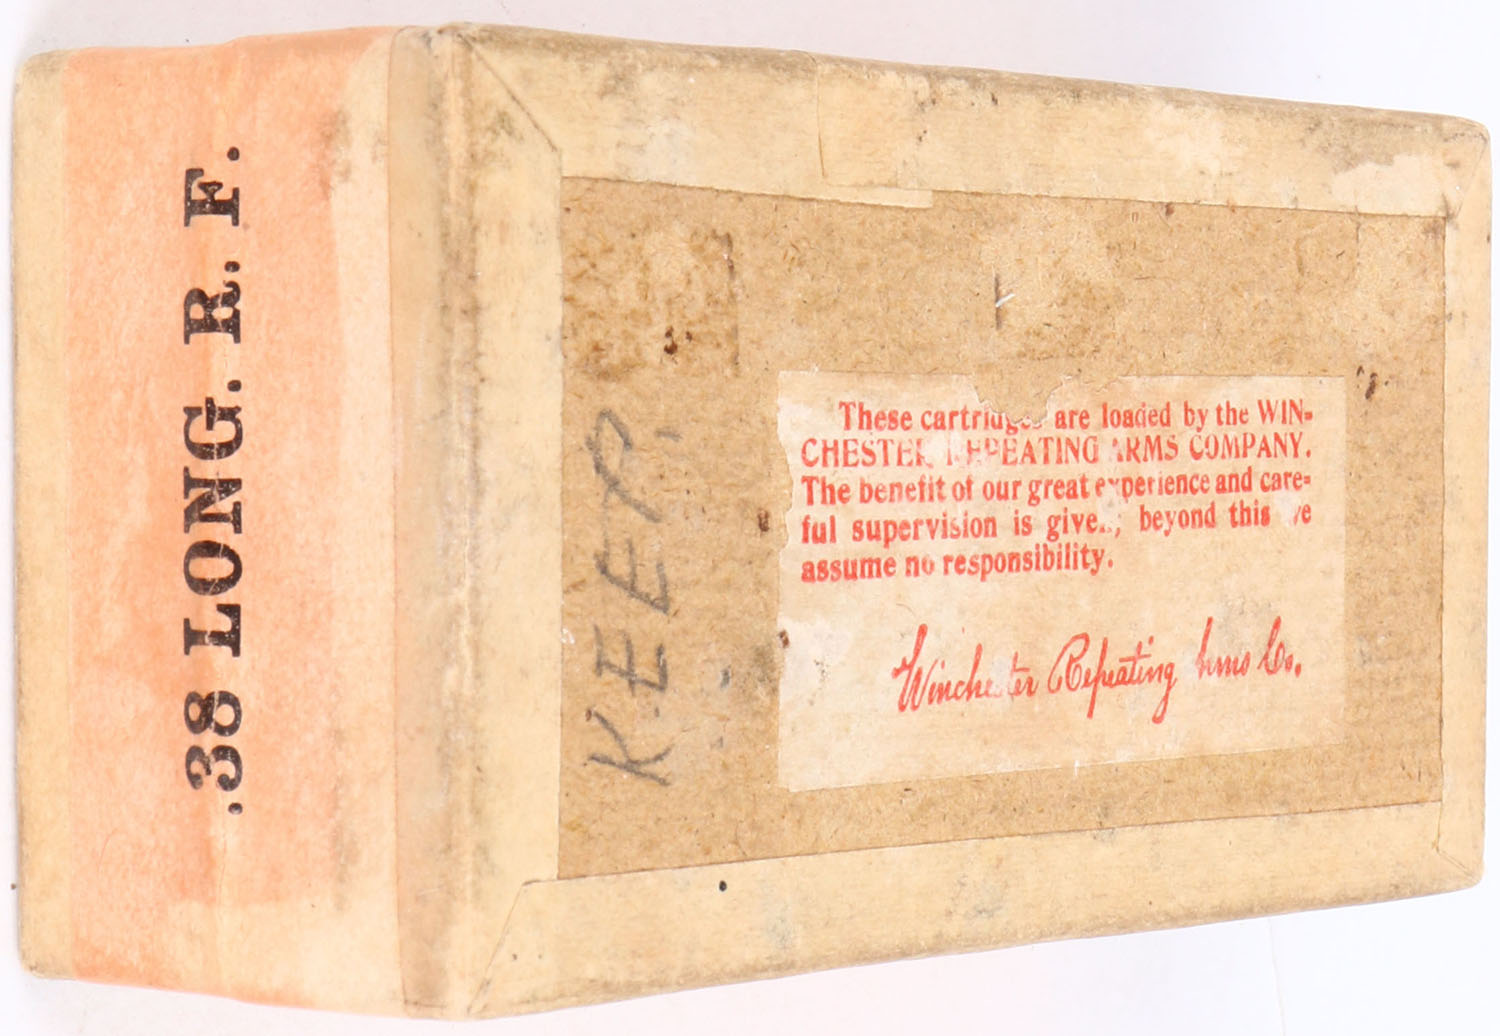 .38 LONG. R. F.
KEEP.
These are loaded by the WIN=
CHESTER REPEATING ARMS COMPANY.
The benefit of our great experience and care=
ful supervision is given, beyond this we
assume no responsibility.
Winchester Repeating Arms Co.